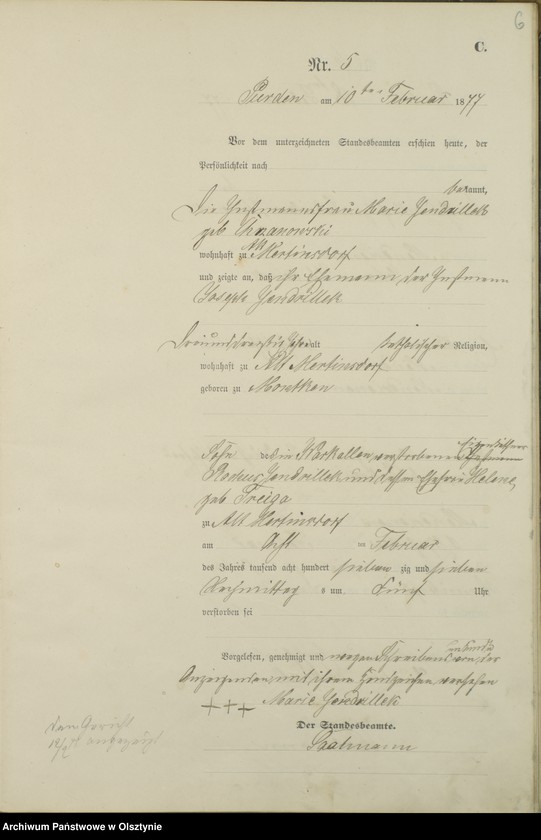 6
C.
Nr. 5
Purden am 10ten Februar 1877
Vor dem unterzeichneten Standesbeamten erschien heute, der
Persönlichkeit nach
bekannt,
Die Instmannsfrau Marie Jendrillek
geb
wohnhaft zu Alt Mertinsdorf
und zeigte an, daß ihr Ehemann der Instmann
Joseph Jendrillek
Jahre alt katholischer Religion,
wohnhaft zu Alt Mertinsdorf
geboren zu Montken
Sohn des in verstorbenen
Jendrillek und dessen Ehefrau Helene,
geb
zu Alt Mertinsdorf
am Acht ten Februar
des Jahres tausend acht hundert sieben zig und sieben
Nachmittag s um Fünf Uhr
verstorben sei
Vorgelesen, genehmigt und wegen Schreibens unkunde von der
Anzeigenden mit ihrem Handzeichen versehen
+++ Marie Jendrillek
Der Standesbeamte.
Archiwum Państwowe w Olsztynie